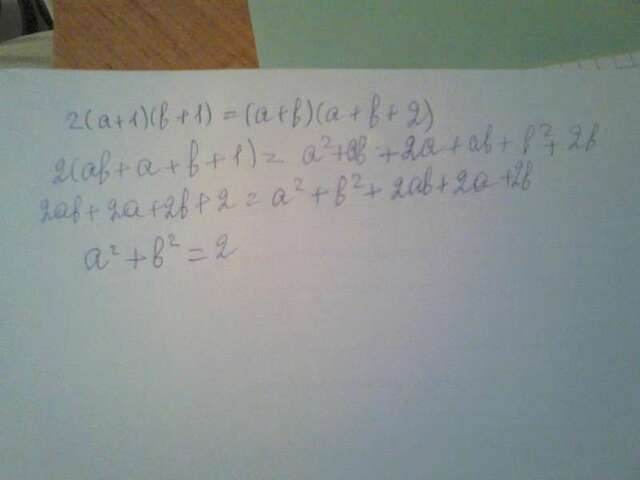 2(a+1)(b+1) = (a+b)(a+b+2)
2(ab+a+b+1) = a²+ab+2a+ab+b²+2b
2ab+2a+2b+2 = a²+b²+2ab+2a+2b
a²+b²=2